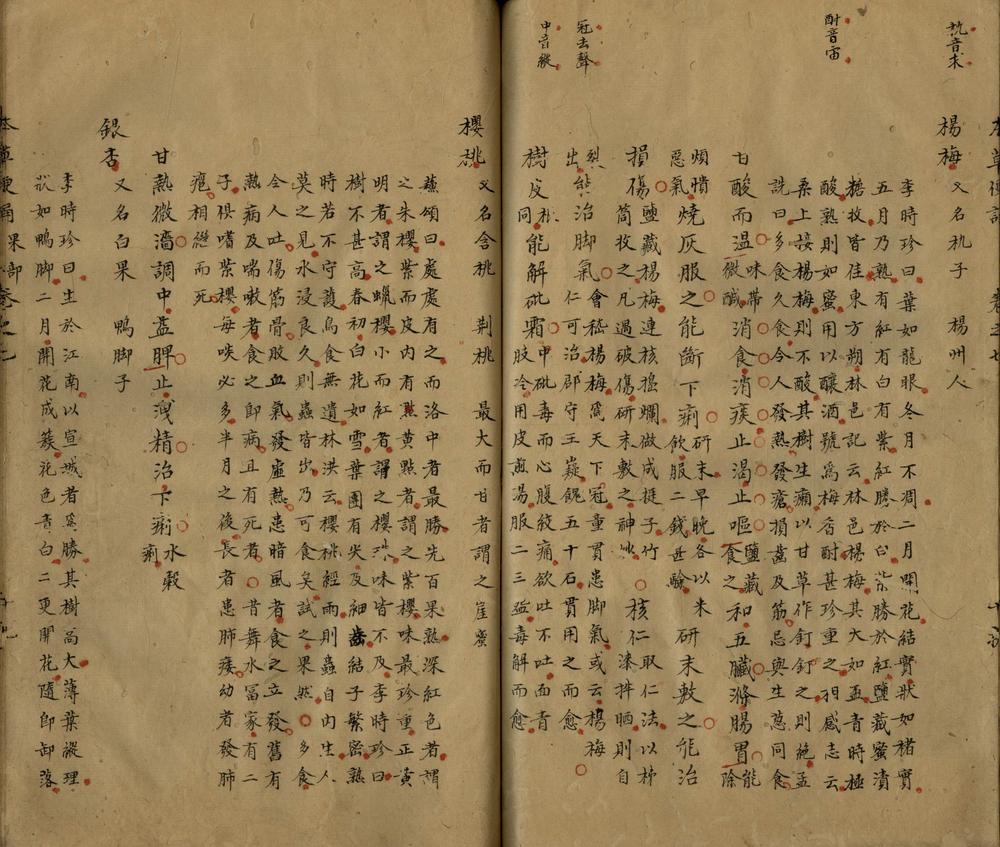 杭音求
酎音宙
冠去聲
中音縱
楊梅 又名朹子 楊州人
李時珍曰葉如龍眼冬月不凋二月開花結實狀如楮實
五月乃熟有紅有白有紫紅勝於白紫勝於紅鹽藏蜜漬
糖收皆佳東方朔林邑記云林邑楊梅其大如盃青時極
酸熟則如蜜用以釀酒號爲梅香酎甚珍重之相感志云
桑上接楊梅則不酸其樹生癩以甘草作釘釘之則絶孟
詵曰多食久食令人發熱發瘡損齒及筋忌與生葱同食
甘酸而温微鹹味帶消食消痰止渴止嘔食之鹽藏和五臟滌腸胃除能
煩憒惡氣燒灰服之能斷下痢飲服二錢甚驗研末早晚各以米研末敷之能治
損傷鹽藏楊梅連核搗爛做成挺子竹筒收之凡遇破傷研末敷之神效核仁取仁法以柿漆拌晒則自
裂出能治脚氣會稽楊梅爲天下冠童貫患脚氣或云楊梅仁可治郡守王嶷餽五十石貫用之而愈
樹皮根同能解砒霜中砒毒而心腹絞痛欲吐不吐面青肢冷用皮煎湯服二三盌毒解而愈
櫻桃 又名含桃 荆桃 最大而甘者謂之崖蜜
蘇頌曰處處有之而洛中者最勝先百果熟深紅色者謂
之朱櫻紫而皮内有點黄點者謂之紫櫻味最珍重正黄
明者謂之蠟櫻小而紅者謂之櫻珠味皆不及李時珍曰
樹不甚高春初白花如雪葉團有尖及細齒結子繁密熟
時若不守護鳥食無遺林洪云櫻桃經雨則蟲自内生人
莫之見水浸良久則蟲皆出乃可食矣試之果然多食
令人吐傷筋骨敗血氣發虛熱患暗風者食之立發舊有
熱病及喘嗽者食之卽病且有死者昔舞水富家有二
子俱嗜紫櫻每啖必多半月之後長者患肺痿幼者發肺
疱相繼而死
甘熱微濇調中益脾止洩精治下痢水穀痢
銀杏 又名白果 鴨脚子
李時珍曰生於江南以宣城者爲勝其樹高大薄葉縱理
狀如鴨脚二月開花成簇花色青白二更開花隨卽卸落
果部